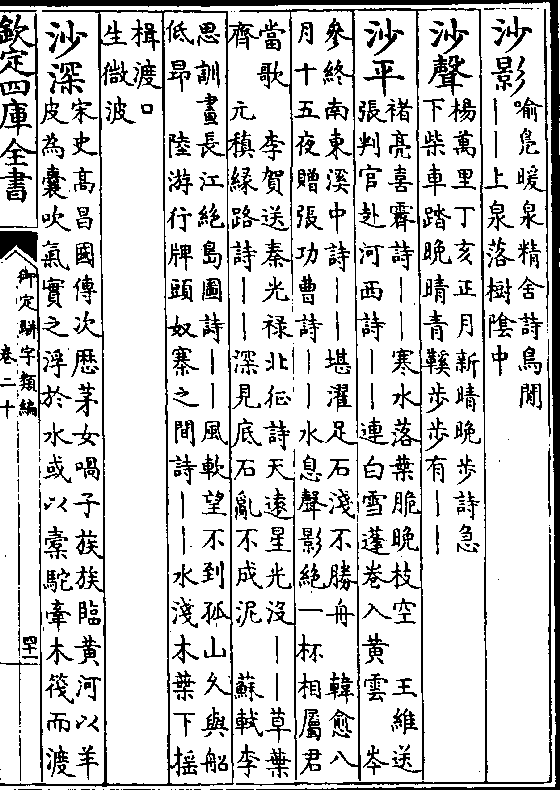 沙影
喻鳧暖泉精舍詩鳥閒
｜｜上泉落樹陰中
沙聲
楊萬里丁亥正月新晴晚步詩急
下柴車踏晚晴青鞵步步有｜｜
沙平
褚亮喜霽詩｜｜寒水落葉脆晚枝空　王維送
張判官赴河西詩｜｜連白雪蓬卷入黄雲　岑
參終南東溪中詩｜｜堪濯足石淺不勝舟　韓愈八
月十五夜贈張功曹詩｜｜水息聲影絶一杯相屬君
當歌　李賀送秦光禄北征詩天遠星光沒｜｜草葉
齊　元稹緣路詩｜｜深見底石亂不成泥　蘇軾李
思訓畫長江絶島圖詩｜｜風軟望不到孤山久與船
低昻　陸游行牌頭奴寨之間詩｜｜水淺木葉下揺
楫渡口
生微波
沙深
宋史髙昌國傳次歴茅女喎子族族臨黄河以羊
皮為囊吹氣實之浮於水或以橐駝牽木筏而渡
欽定四庫全書
御定駢字類編
卷二十